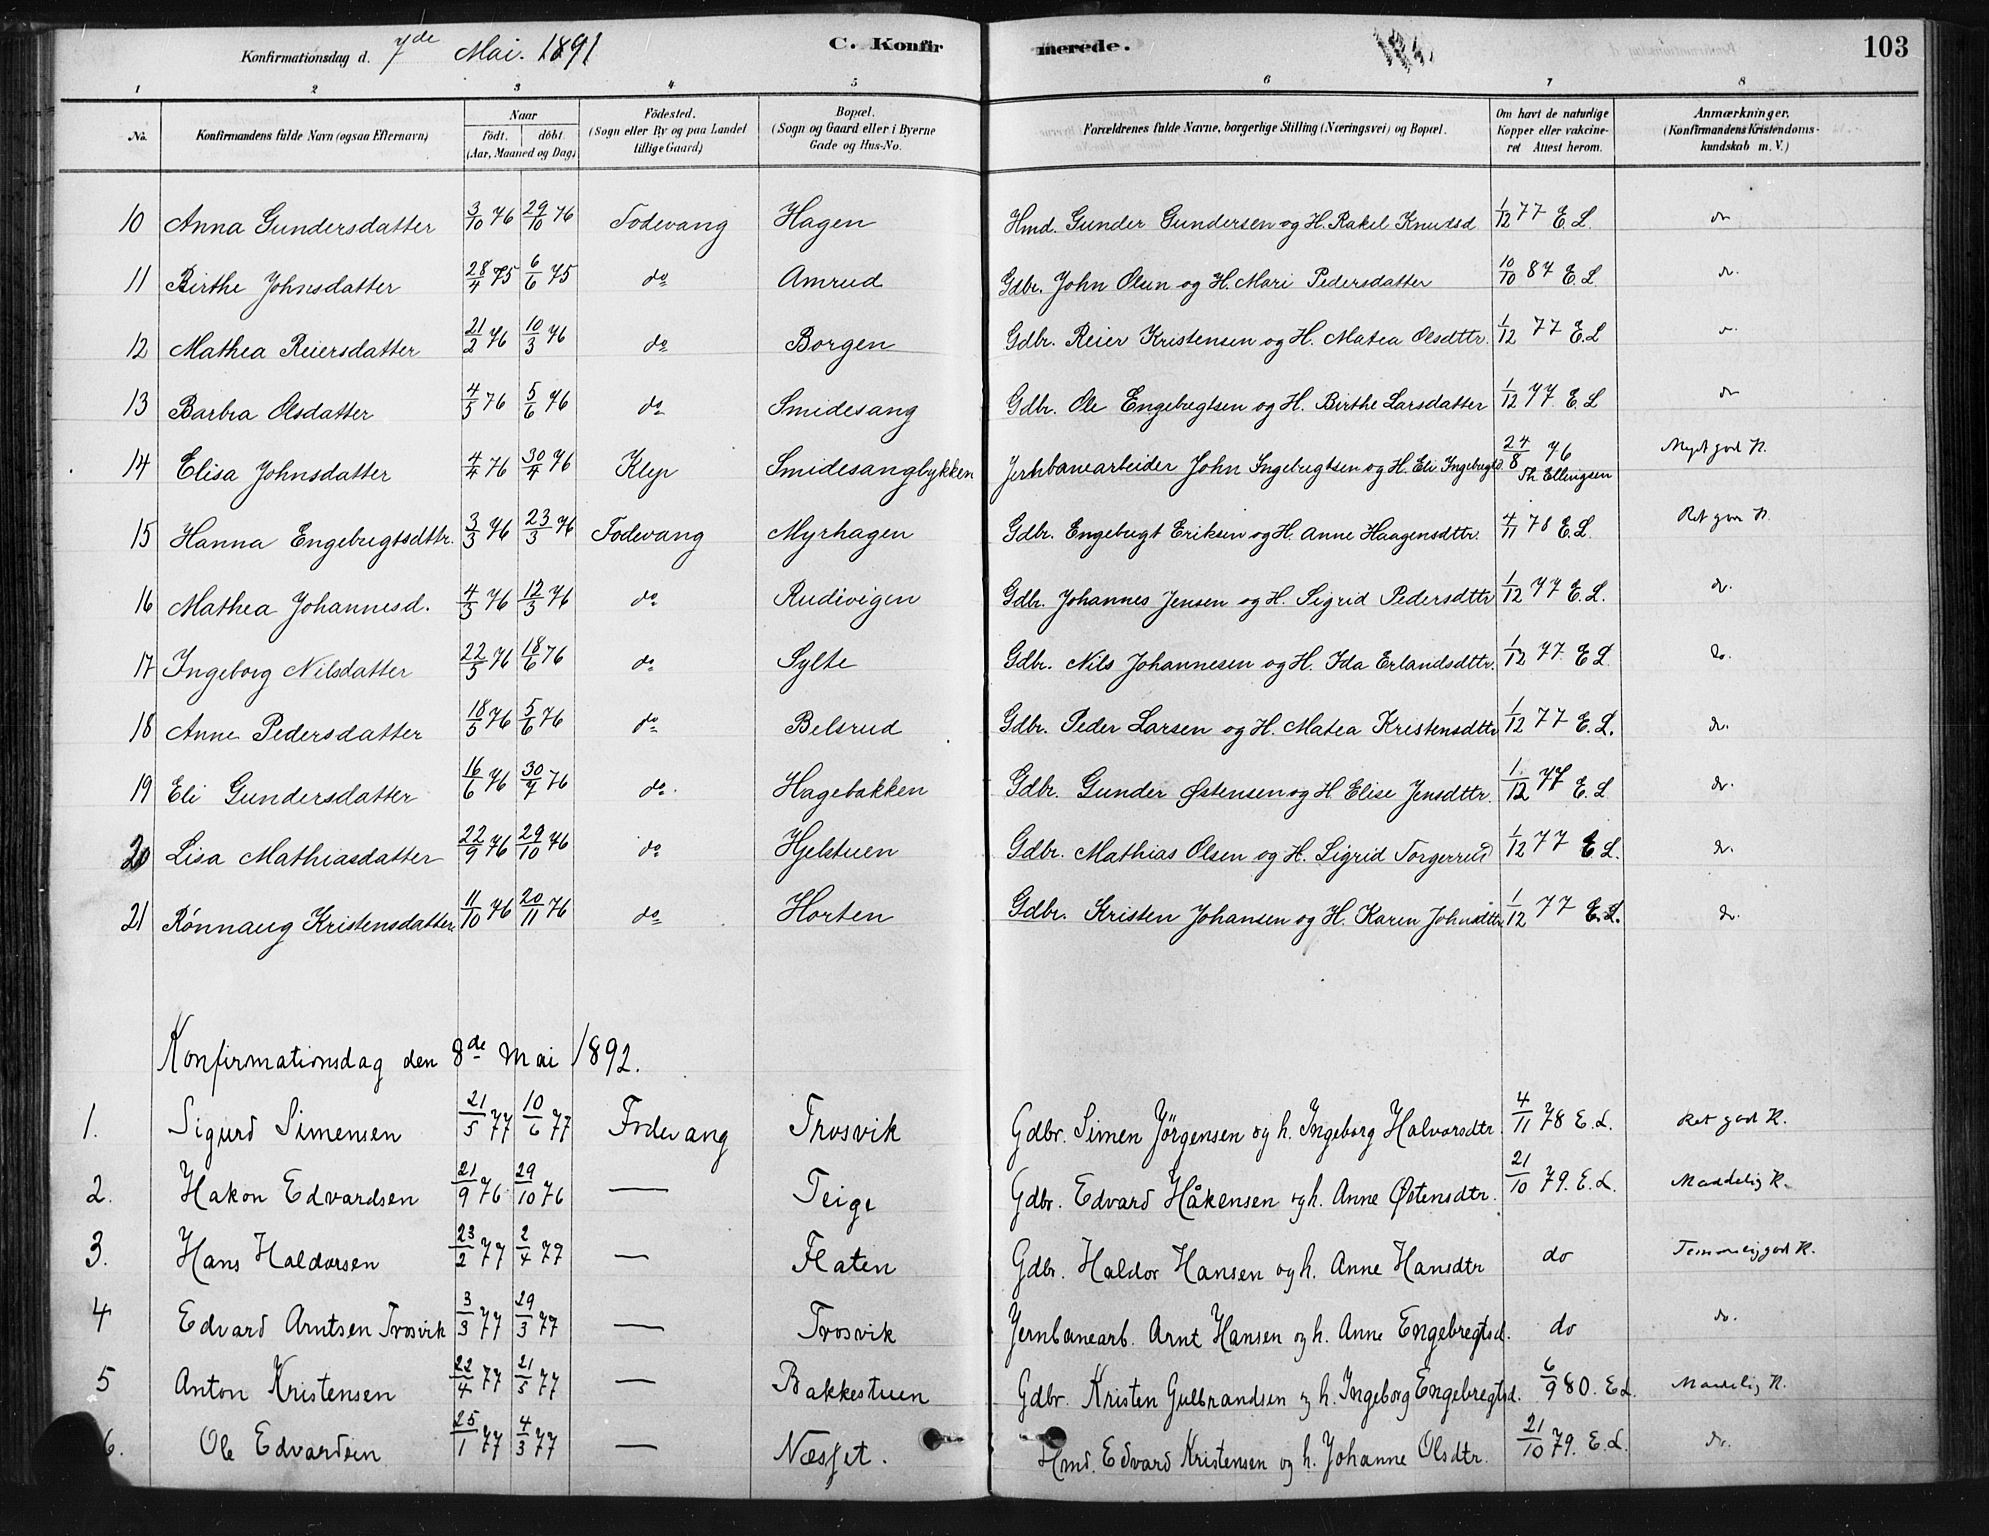 Konfirmationsdag d. 7de Mai. 1891 C. Konfirmerede. 103
1 2 3 4 5 6 7 8
No. Konfirmandens fulde Navn (ogsaa Efternavn) Naar født. døbt. (Aar, Maaned og Dag) Fødested. (Sogn eller By og paa Landet tillige Gaard) Bopæl. (Sogn og Gaard eller i Byerne Gade og Hus-No. Forældrenes fulde Navne, borgerlige Stilling (Næringsvei) og Bopæl. Om havt de naturlige Kopper eller vakcineret Attest herom. Anmærkninger. (Konfirmandens Kristendomskundskab m. V.)
10 Anna Gundersdatter 3/10 76 29/10 76 Fodevang Hagen Hmd. Gunder Gundersen og H. Rakel Knutsd 1/12 77 E. L. do
11 Birthe Johnsdatter 28/4 75 6/6 75 do Amrud Gdbr. John Olsen og H. Mari Pedersdatter 10/10 87 E. L. do.
12 Mathea Reiersdatter 21/2 76 10/3 76 do Borgen Gdbr. Reier Kristensen og H. Matea Olsdttr. 1/12 77 E. L
13 Barbra Olsdatter 4/5 76 5/6 76 do Smidesang Gdbr. Ole Engebregtsen og H. Birthe Larsdatter 1/12 77 E. L do
14 Elisa Johnsdatter 4/4 76 30/4 76 Klep Smidesangbykken Jernbanearbeider John Ingebregtsen og H. Eli Ingebregtsd. 24/8 76 Th. Ellingsen Meget god K.
15 Hanna Engebregtsdttr. 3/3 76 23/3 76 Fodevang Myrhagen Gdbr. Engebregt Eriksen og H. Anne Haagensdttr. 4/11 78 E. L. Ret god K.
16 Mathea Johannesd. 4/5 76 12/3 76 do Rudivigen Gdbr. Johannes Jensen og H. Sigrid Pedersdttr 1/12 77 E. L. do.
17 Ingeborg Nilsdatter 22/5 76 18/6 76 do Sylte Gdbr. Nils Johannesen og H. Ida Erlandsdttr. 1/12 77 E. L. do.
18 Anne Pedersdatter 18/5 76 5/6 76 do Belsrud Gdbr. Peder Larsen og H. Matea Kristensdttr 1/12 77 E. L. do.
19 Eli Gundersdatter 16/6 76 30/7 76 do. Hagebakken Gdbr. Gunder Østensen og H Elise Jensdttr. 1/12 77 E. L do.
20 Lisa Mathiasdatter 22/9 76 29/10 76 do Hjelstuen Gdbr. Mathias Olsen og H. Sigrid 1/12 77 E L. do.
21 Rönnaug Kristensdatter 11/10 76 20/11 76 do Horten Gdbr. Kristen Johansen og H. Karen Johnsdttr 1/12 77 E. L. do.
Konfirmationsdag den 8de Mai 1892.
1. Sigurd Simensen 21/5 77 10/6 77 Fodevang Trosvik Gdbr. Simen Jörgensen og h. Ingeborg Halvorsdtr 4/11 78 E. L. Ret god K.
2. Hakon Edvardsen 21/9 76 29/10 76 — Teige Gdbr. Edvard Håkensen og h. Anne Østensdtr. 21/10 79. E. L. Maadelig K.
3. Hans Haldorsen 23/2 77 2/4 77 — Flaten Gdbr. Haldor Hansen og h. Anne Hansdtr do Temmelig god K.
4 Edvard Arntsen Trosvik 3/3 77 29/3 77 — Trosvik Jernbanearb. Arnt Hansen og h. Anne Engebregtsd. do do.
5 Anton Kristensen 22/4 77 21/5 77 — Bakkestuen Gdbr. Kristen Gulbrandsen og h. Ingeborg Engebregtsd. 6/9 80. E L. Maadelig K.
6. Ole Edvardsen 25/1 77 4/3 77 — Næsset. Hmd. Edvard Kristensen og h. Johanne Olsdtr. 21/10 79. E. L. do.